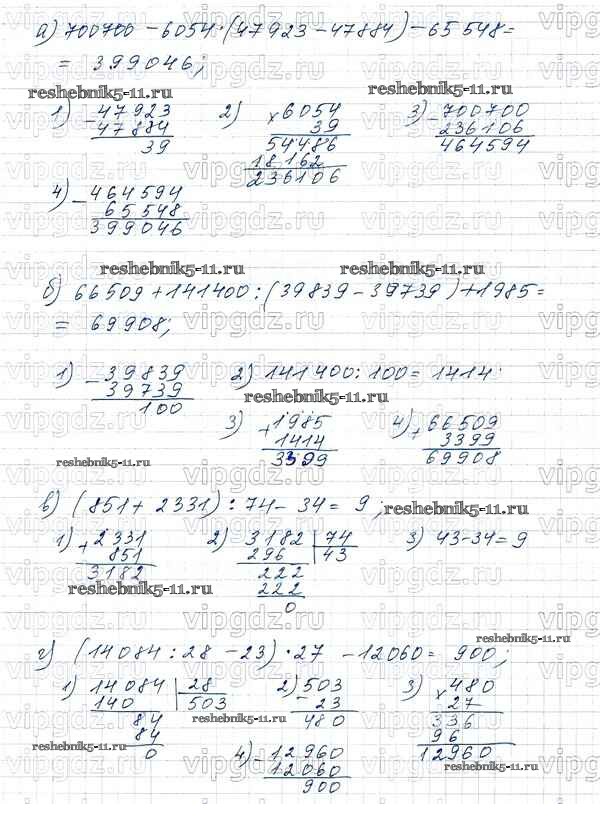 а) 700700 - 6054·(47923 - 47884) - 65548 =
= 399046;
reshebnik5-11.ru
reshebnik5-11.ru
1) - 47923 2) × 6054 3) - 700700
47884 39 236106
39 54486 464594
18162
236106
4) - 464594
65548
399046
reshebnik5-11.ru
reshebnik5-11.ru
б) 66509 + 141400 : (39839 - 39739) + 1985 =
= 69908;
1) - 39839 2) 141400 : 100 = 1414
39739
100
reshebnik5-11.ru
3) + 1985 4) + 66509
1414 3399
3399 69908
reshebnik5-11.ru
в) (851 + 2331) : 74 - 34 = 9;
reshebnik5-11.ru
1) + 2331 2) 3182 | 74 3) 43 - 34 = 9
851 296 43
3182 222
222
0
reshebnik5-11.ru
г) (14084 : 28 - 23) · 27 - 12060 = 900;
1) 14084 | 28 2) - 503 3) × 480
140 503 23 27
84 480 336
84 96
0 12960
reshebnik5-11.ru
reshebnik5-11.ru
4) - 12960
12060
900
reshebnik5-11.ru
vipgdz.ru